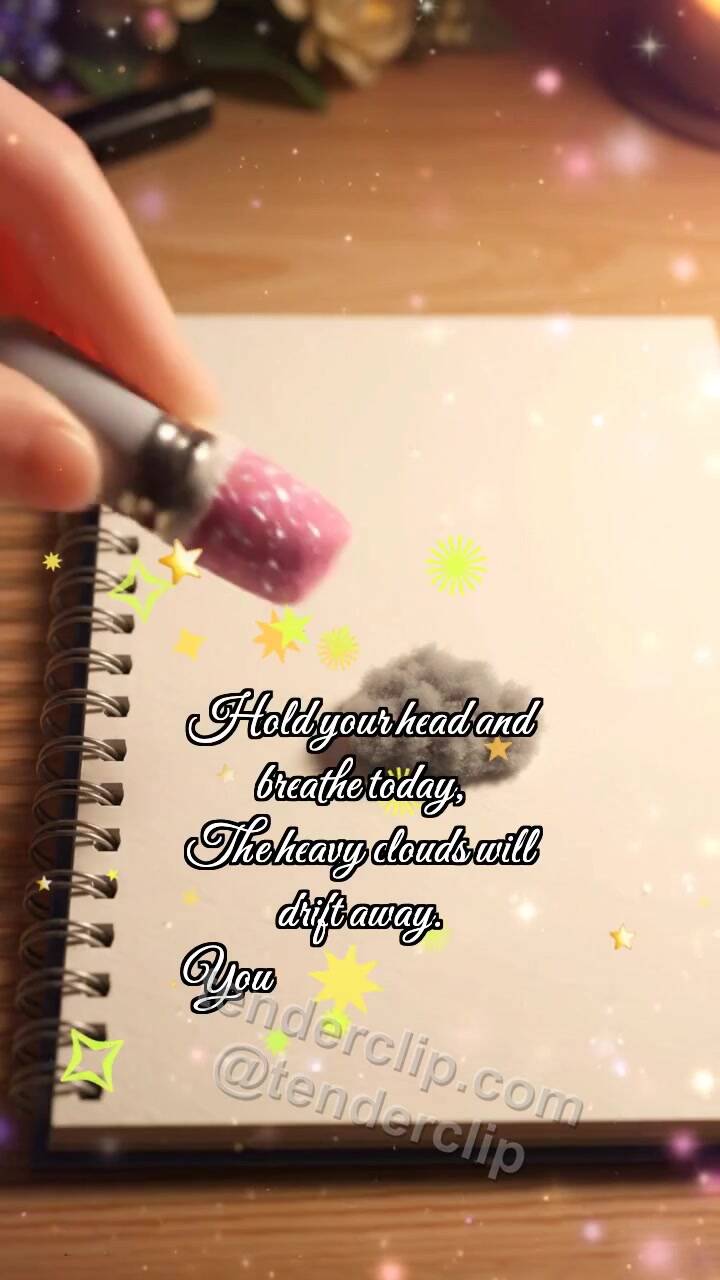 Hold your head and
breathe today,
The heavy clouds will
drift away.
You
tenderclip.com
@tenderclip